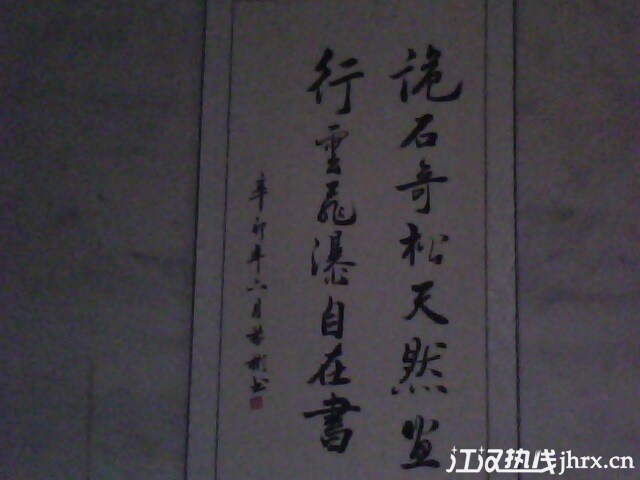 诡石奇松天然画
行雲飛瀑自在書
辛卯年六月 彬书
江汉热线jhrx.cn